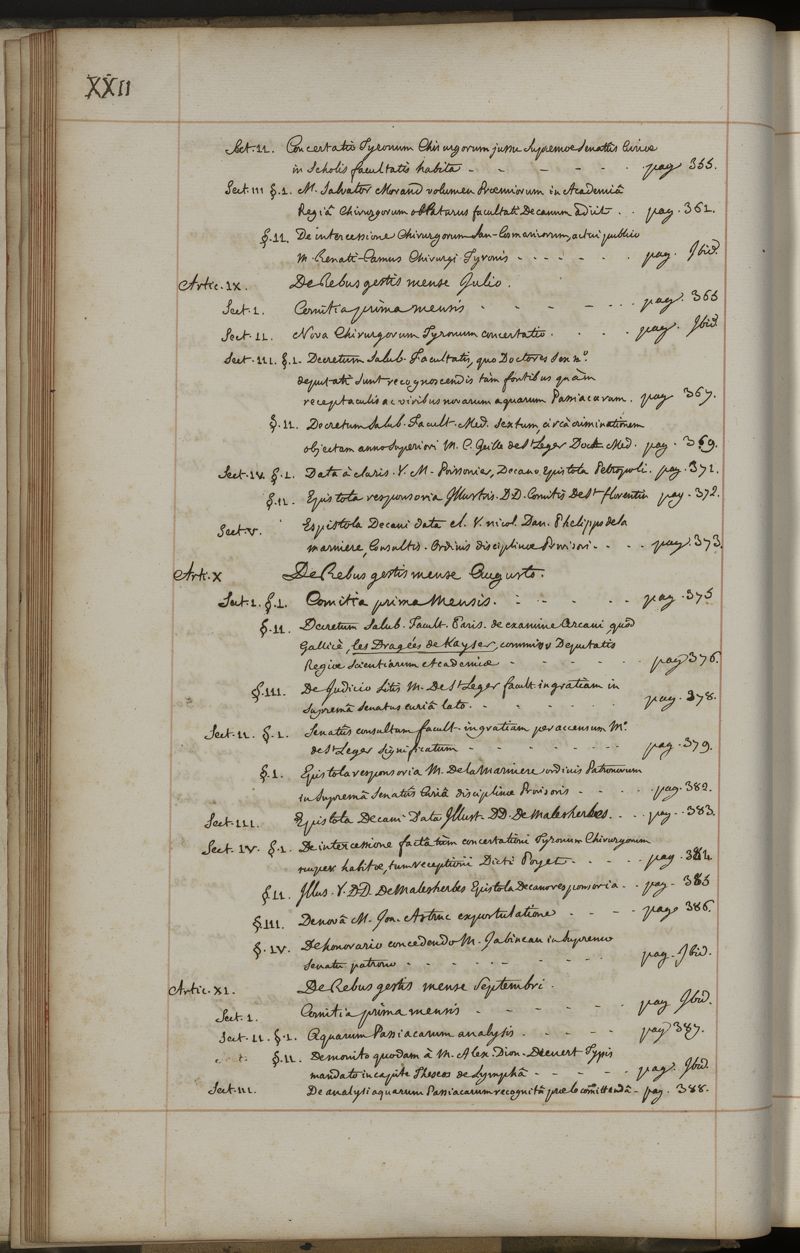 XXII
Sect. II. Concertatio Tyronum Chirurgorum jussu Supremoe Senatûs Curioe
in Scholis facultatis habita - - - - - - pag. 355.
Sect. III §. I. M. Salvator Morand volumen Proemiorum in Academiâ
Regiâ Chirurgorum oblaturus facultatis Decanum adiit . . pag. 361.
§. II. De intercessione Chirurgorum San-Cosmianorum, actui publico
M. Renati-Camus Chirurgi Tyronis - - - - - - pag. Ibid.
Artic. IX. De Rebus gestis mense Julio.
Sect. I. Comitia prima mensis - - - - - . . . pag. 366
Sect. II. Nova Chirurgorum Tyronum concertatio. . . . . pag. Ibid.
Sect. III. §. I. Decretum Salub. Facultatis, quo Doctores Sex n°.
deputati sunt recognoscendis tàm fontibus quàm
receptaculis ac viribus novarum aquarum Passiacarum. pag 367.
§. II. Decretum Salub. Facult. Med. Sextum, circà criminationem
objectam anno superiori M. C. Guille de St Leger Doct. Med. pag. 369.
Sect. IV. §. I. Data à claris. V. M. Poissonier, Decano Epistola Petropoli. pag. 371.
§. II. Epistola responsoria Illustris. D.D. Comitis De St florentin pag. 372.
Sect. V. Espistola Decani data cl. V. nicol. Dan. Phelippes de la
marniere, Consultis. Ordinis disciplinoe Provisori - . . . pag. 373.
Arti. X De Rebus gestis mense Augusto.
Sect. I. §. I. Comitia prima Mensis. - - - - . . pag. 375
§. II. Decretum Salub. Facult. Paris. de examine Arcani quod
Gallicè, les Dragées de Kayser, commisso Deputatis
Regioe Scientiarum Academioe - - - - - . . pag 376.
§. III. De Judicio Litis M. De St Leger facult. in gratiam in
Supremâ Senatus curiâ lato. - - - - . . . pag. 378.
Sect. II. §. I. Senatûs consultum facult. in gratiam per accensum M°.
de St Leger significatum - - - - - - - - pag. 379.
§. I. Epistola responsoria M. De la Marniere ordinis Patronorum
in Supremâ Senatûs Curiâ disciplinoe Provisoris - - . . . pag. 382.
Sect. III. Epistola Decani Data Illust. DD. De Malesherbes. . . . pag. 383.
Sect. IV. §. I. De intercessione factâ tùm concertationi Tyronum Chirurgorum
nuper habitoe, tum receptioni Dicti Poyet - - - . . pag. 384
§ II. Illus. V. D.D. De Malesherbes Epistola Decano responsoria - . pag. 385
§. III. De novâ M. Jon. Astruc expostulatione . - - . pag. 386.
§. IV. De honorario concedendo M. Jabineau in Supremo
Senatu patrono - - - - - - - . . . pag. Ibid.
Artic. XI. De Rebus gestis mense Septembri.
Sect. I. Comitia prima mensis - - - - - . pag Ibid.
Sect. II. §. I. Aquarum Passiacarum analysis . - - - - pag 387.
§. II. De monito quodam à M. Alex. Dion. Dienert Typis
mandato in capite Theseos de Lymphâ - - - - - pag. Ibid.
Sect. III. De analysi aquarum Passiacarum recognitâ proelo comittendâ - pag. 388.